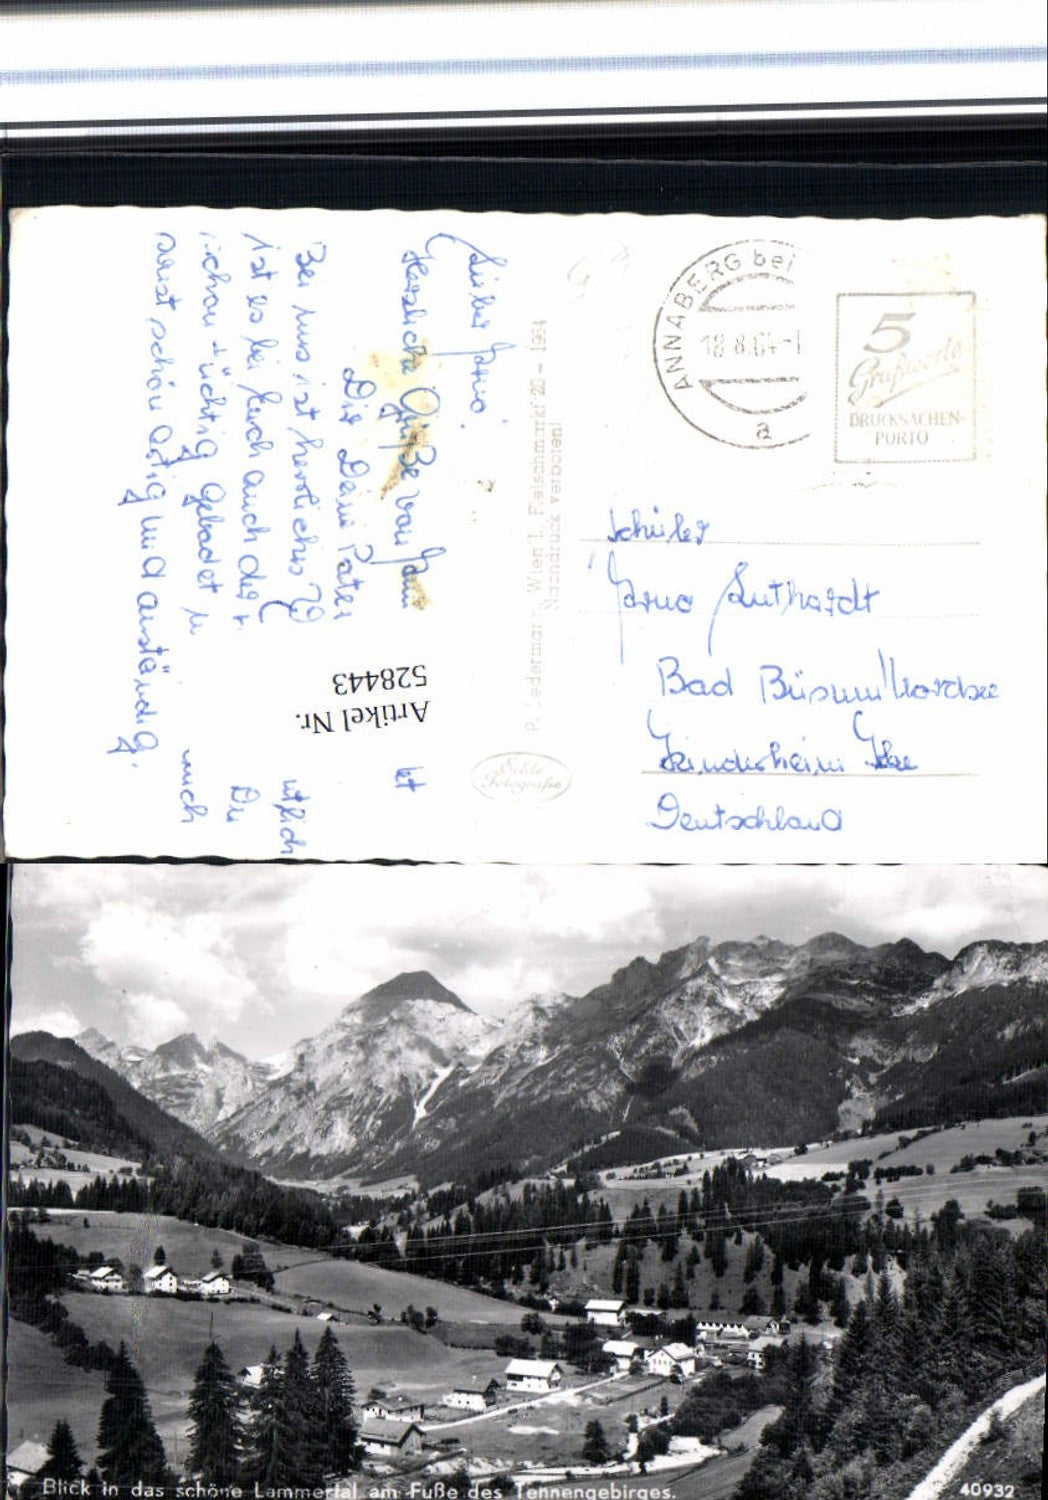 Lieber Jarno!
Herzliche Grüße von
Dir Dein Pate
Bei uns ist herrliches
ist es bei Euch auch der
schon tüchtig gebadet u
sonst schön artig und anständig.
ntlich
Du
auch
P. Ledermann, Wien I., Fleischmarkt 20 – 1964
Nachdruck verboten!
Echte
Fotografie
Artikel Nr.
528443
ANNABERG bei
18.8.64-1
a
5
Grußworte
DRUCKSACHEN-
PORTO
Schüler
Jarno Luthardt
Bad Büsum/Nordsee
Kinderheim
Deutschland
Blick in das schöne Lammertal am Fuße des Tennengebirges.
40932